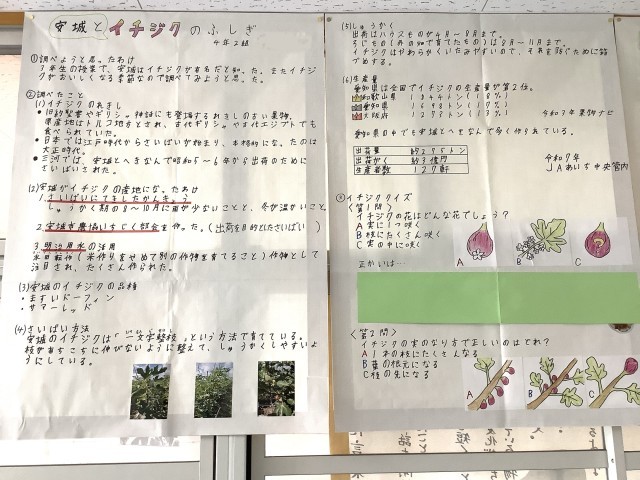 安城とイチジクのふしぎ
4年2組
①調べようと思ったわけ
3年生の授業で、安城はイチジクが有名だと知った。またイチジ
クがおいしくなる季節なので調べてみようと思った。
②調べたこと
(1)イチジクのれきし
●旧約聖書やギリシャ神話にも登場するれきしのある果物。
原産地はトルコ地方とされ、古代ギリシャや古代エジプトでも
食べられていた。
●日本では江戸時代からさいばいが始まり、本格的になったのは
大正時代。
●三河では、安城とへきなんで昭和5〜6年から出荷のために
さいばいされた。
(2)安城がイチジクの産地になったわけ
1.さいばいにてきしたかんきょう
しゅうかく期の8〜10月に雨が少ないことと、冬が温かいこと。
2.安城市農協いちじく部会を作った。(出荷を目的としたさいばい)
3.明治用水の活用
水田転作(米作りをやめて別の作物を育てること)作物として
注目され、たくさん作られた。
(3)安城のイチジクの品種
・ますいドーフィン
・サマーレッド
(4)さいばい方法
安城のイチジクは「一文字整枝」という方法で育てている。
枝があちこちに伸びないように整えて、しゅうかくしやすいよ
うにしている。
(5)しゅうかく
出荷はハウスものが4月〜8月まで。
ろじもの(外の畑で育てたもの)は8月〜11月まで。
イチジクはやわらかくいたみやすいので、それを防ぐために箱
づめする。
(6)生産量
愛知県は全国でイチジクの生産量が第2位。
和歌山県
愛知県
大阪府
令和3年果物ナビ
愛知県の中でも安城とへきなんで多く作られている。
出荷量 約275トン
出荷がく 約3億円
生産者数 127軒
令和7年
JAあいち中央管内
③イチジククイズ
<第1問>
イチジクの花はどんな花でしょう?
A実に1つ咲く
B枝にたくさん咲く
C実の中に咲く
A
B
C
正かいは…
<第2問>
イチジクの実のなり方で正しいのはどれ?
A1本の枝にたくさんなる
B葉の根元になる
C枝の先になる
A
B
C